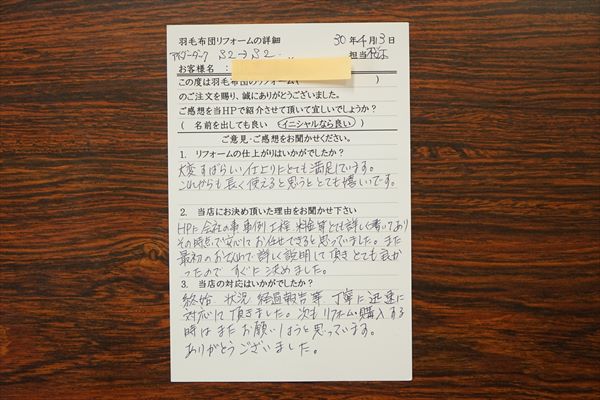 羽毛布団リフォームの詳細 30年4月3日
S2→S2 担当
お客様名 :
この度は羽毛布団のリフォーム( )
のご注文を賜り、誠にありがとうございました。
ご感想を当HPで紹介させて頂いて宜しいでしょうか?
( 名前を出しても良い イニシャルなら良い )
ご意見・ご感想をお聞かせください。
1. リフォームの仕上がりはいかがでしたか?
大変すばらしい仕上りにとても満足しています。
これからも長く使えると思うととても嬉しいです。
2. 当店にお決め頂いた理由をお聞かせ下さい
HPに会社の事、事例、工程、料金等とても詳しく書いてあり
その時点で安心してお任せできると思っていました。また
最初のお で詳しく説明して頂きとても良か
ったので すぐに決めました。
3. 当店の対応はいかがでしたか?
終始、状況、経過報告等、丁寧に迅速に
対応して頂きました。次もリフォーム・購入する
時はまたお願いしようと思っています。
ありがとうございました。